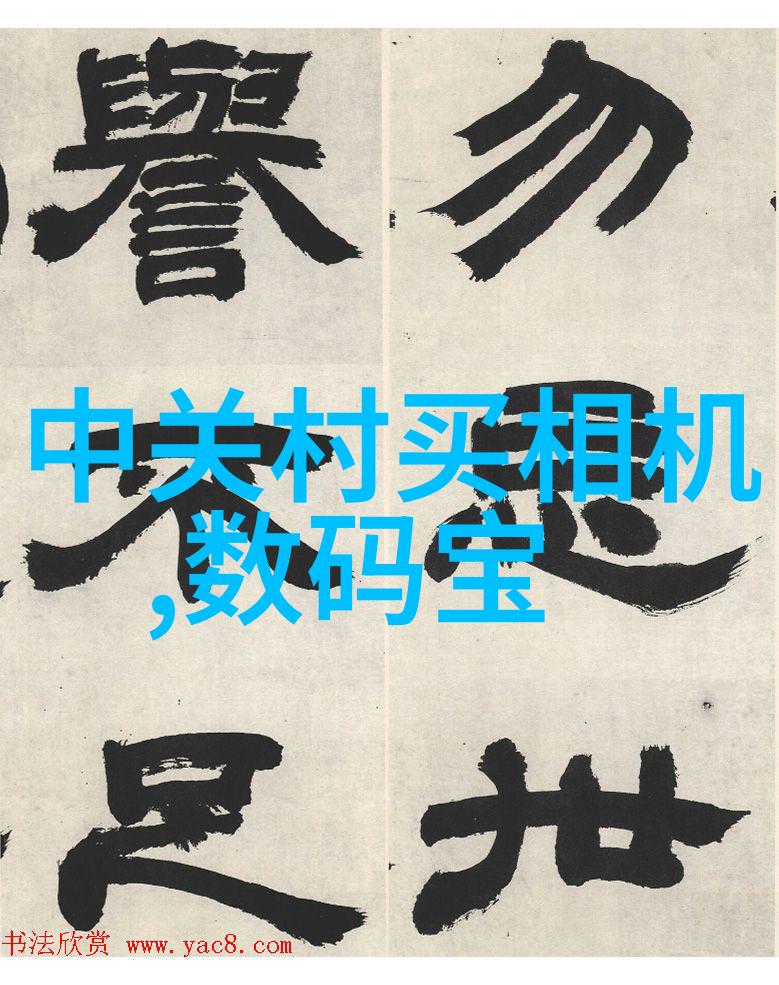 勿
世
譽不足
中关村买相机
,数码宝
书法欣赏 www.yac8.com